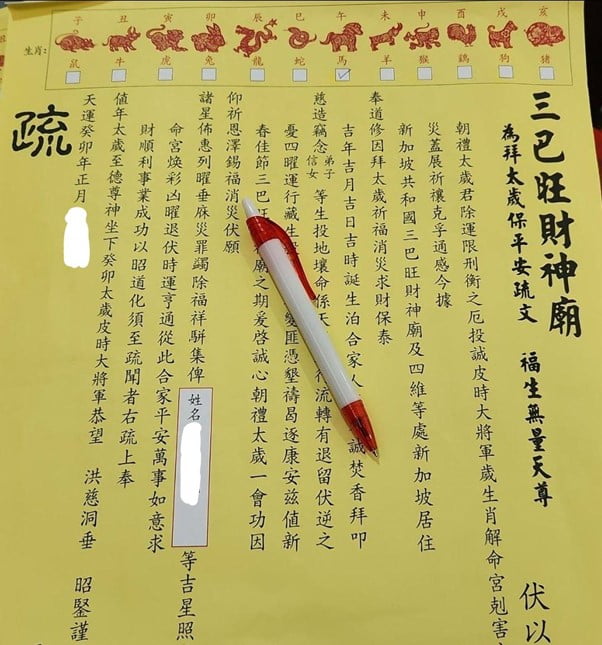 子 丑 寅 卯 辰 巳 午 未 申 酉 戌 亥
生肖:
鼠 牛 虎 兔 龍 蛇 馬 羊 猴 鷄 狗 猪
三巴旺財神廟
為拜太歲保平安疏文 福生無量天尊
伏以
朝禮太歲君除運限刑衡之厄投誠皮時大將軍歲生肖解命宮剋害
災蓋展祈禳克孚通感今據
新加坡共和國三巴旺財神廟及四維等處新加坡居住
奉道修因拜太歲祈福消災求財保泰
吉年吉月吉日吉時誕生泊合家人 誠焚香拜叩
慈造竊念弟子信女等生投地壤命係天 行流轉有退留伏逆之
憂四曜運行藏生 變匪憑懇禱曷逐康安兹値新
春佳節三巴旺 廟之期爰啓誠心朝禮太歲一會功因
仰祈恩澤錫福消災伏願
諸星佈惠列曜垂麻災罪蠲除福祥駢集俾 姓名 等吉星照
命宮煥彩凶曜退伏時運亨通從此合家平安萬事如意求
財順利事業成功以昭道化須至疏聞者右疏上奉
値年太歲至德尊神坐下癸卯太歲皮時大將軍恭望 洪慈洞垂 昭鋻謹
天運癸卯年正月
疏